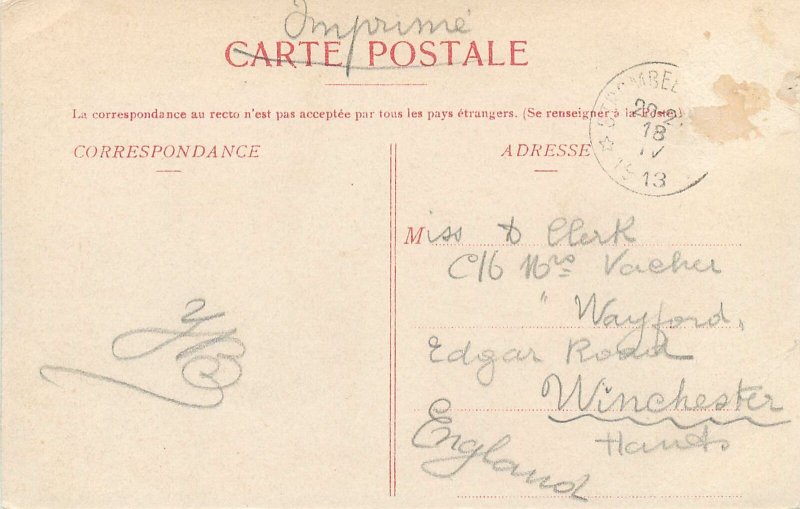 Imprimé
CARTE POSTALE
La correspondance au recto n'est pas acceptée par tous les pays étrangers. (Se renseigner à la Poste)
CORRESPONDANCE
ADRESSE
20-21
18
IV
1913
Miss D Clerk
C/o Mrs Vacher
" Wayford,
Edgar Road
Winchester
Hants
England